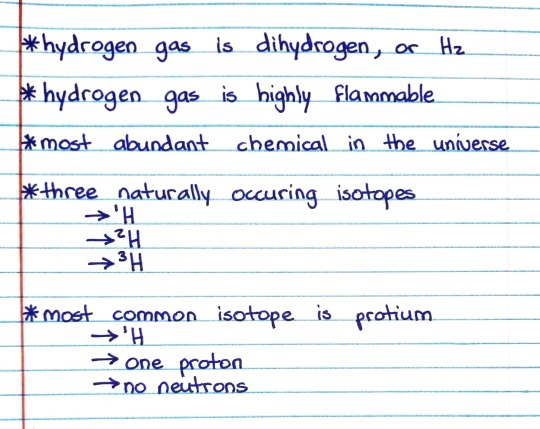 *hydrogen gas is dihydrogen, or H₂
*hydrogen gas is highly flammable
*most abundant chemical in the universe
*three naturally occuring isotopes
→¹H
→²H
→³H
*most common isotope is protium
→¹H
→one proton
→no neutrons